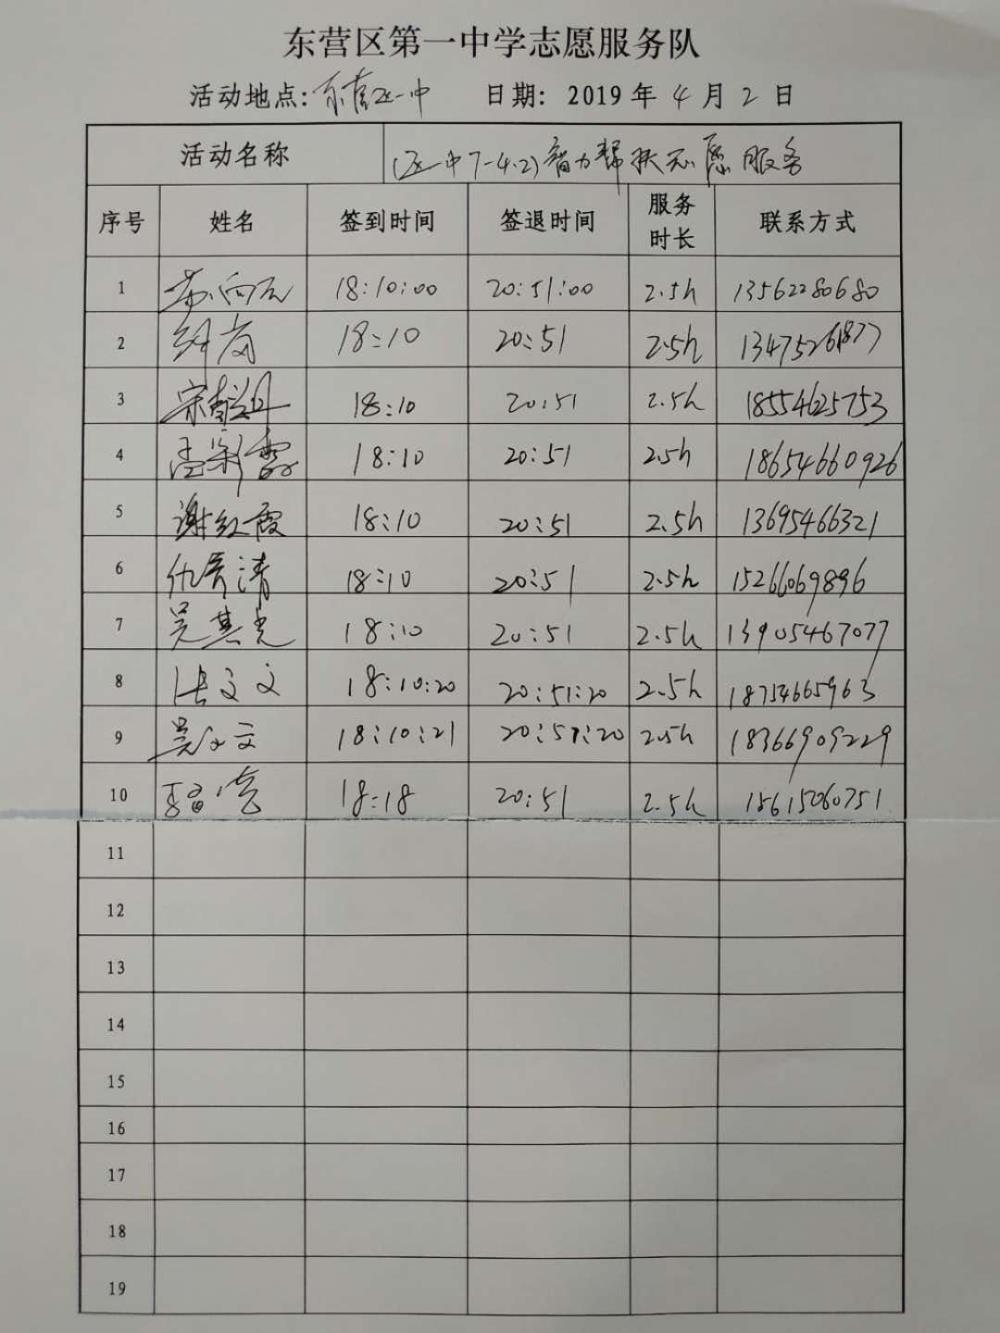 东营区第一中学志愿服务队
活动地点:东营区一中 日期: 2019年4月2日
活动名称 (区一中7-4.2)智力帮扶志愿服务
序号 姓名 签到时间 签退时间 服务时长 联系方式
1 18:10:00 20:51:00 2.5h 13562280680
2 18:10 20:51 2.5h 13475261877
3 18:10 20:51 2.5h 18554625753
4 孟彩霞 18:10 20:51 2.5h 18654660926
5 谢红霞 18:10 20:51 2.5h 13695466321
6 18:10 20:51 2.5h 15266069896
7 吴其光 18:10 20:51 2.5h 13905467077
8 张文文 18:10:20 20:51:20 2.5h 18754665963
9 吴文文 18:10:21 20:51:20 2.5h 18366909229
10 18:18 20:51 2.5h 15615060751
11
12
13
14
15
16
17
18
19